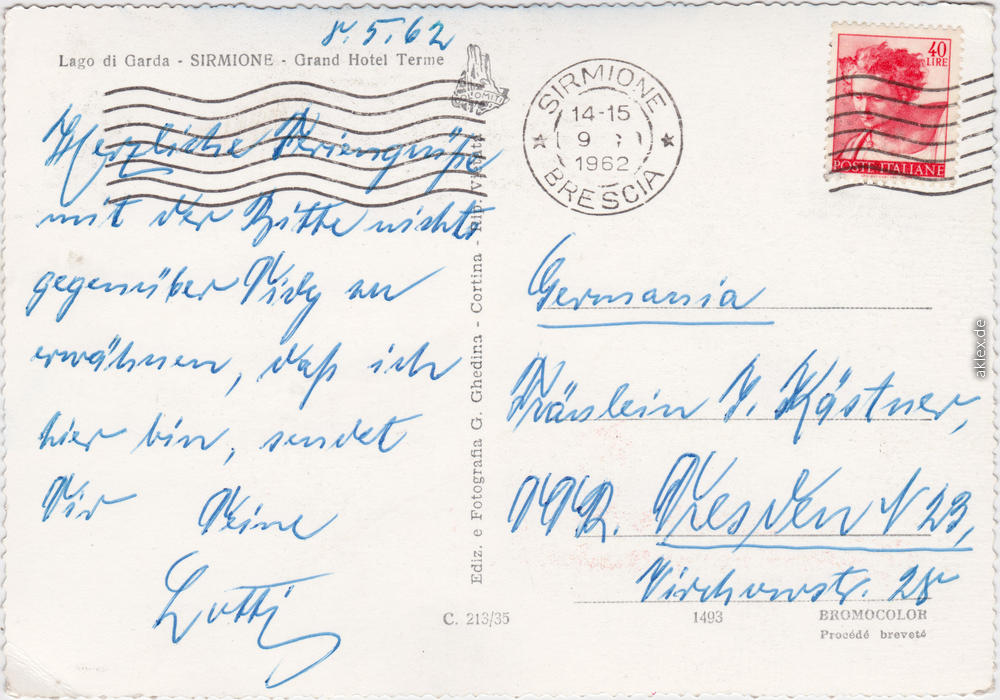 8.5.62
Lago di Garda - SIRMIONE - Grand Hotel Terme
DOLOMITI
Herzliche Feriengrüße
mit der Bitte nichts
gegenüber an
erwähnen, daß ich
hier bin, sendet
Dir Deine
Lotti
Ediz. e Fotografia G. Ghedina - Cortina - Rip. Vietata
SIRMIONE
14-15
9
1962
BRESCIA
40
LIRE
POSTE ITALIANE
Germania
Fräulein J. Kästner,
DDR. Dresden N 23,
Virchowstr. 28
C. 213/35
1493
BROMOCOLOR
Procédé breveté
aklex.de